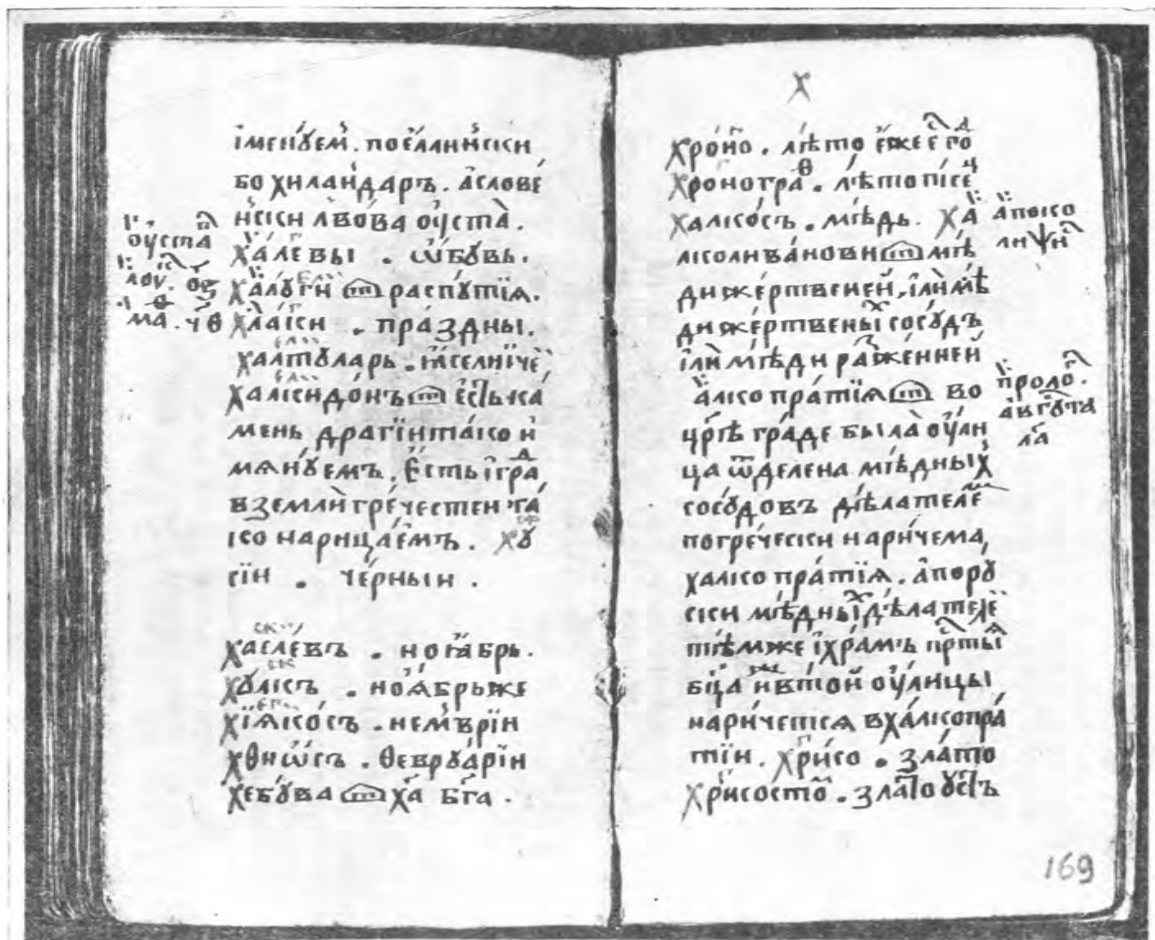 іменꙋем. поеллински
бо хиландаръ. а слове
нски лвова оуста.
халевы. ѡбꙋвь.
халꙋги распꙋтия.
хлаки. праздны.
халтꙋларь.
халкидонъ есть ка
мень драгіи тако и
мянꙋемъ. Есть і гра
в земли греческои та
ко нарицаемъ. хꙋ
сіи. черныи.
хаслевъ. ноябрь.
хꙋлкъ. ноябрь же
хіякосъ. немврїи
хѳиѡсъ. ѳеврꙋарїи
хевꙋва ха бга.
оуста
ма. чѳ
х
хроно. лѣто еже е го
хроногра. лѣтописе
халкосъ. мѣдь. ха
лколиванови мѣ
ди жертвеней, іли мѣ
ди жертвены сосꙋдъ
іли мѣди раженней
алкопратїя во
црѣграде была оули
ца ѿделена мѣдных
сосꙋдовъ дѣлателе
погречески наричема
халкопратїя. а порꙋ
ски мѣдны дѣлателе
тѣмже і храмъ прты
бца и в той оулицы
наричется в халкопра
тїи. хрисо. злато
хрисосто. златоꙋсть
апока
проло.
авгꙋста
ла
169